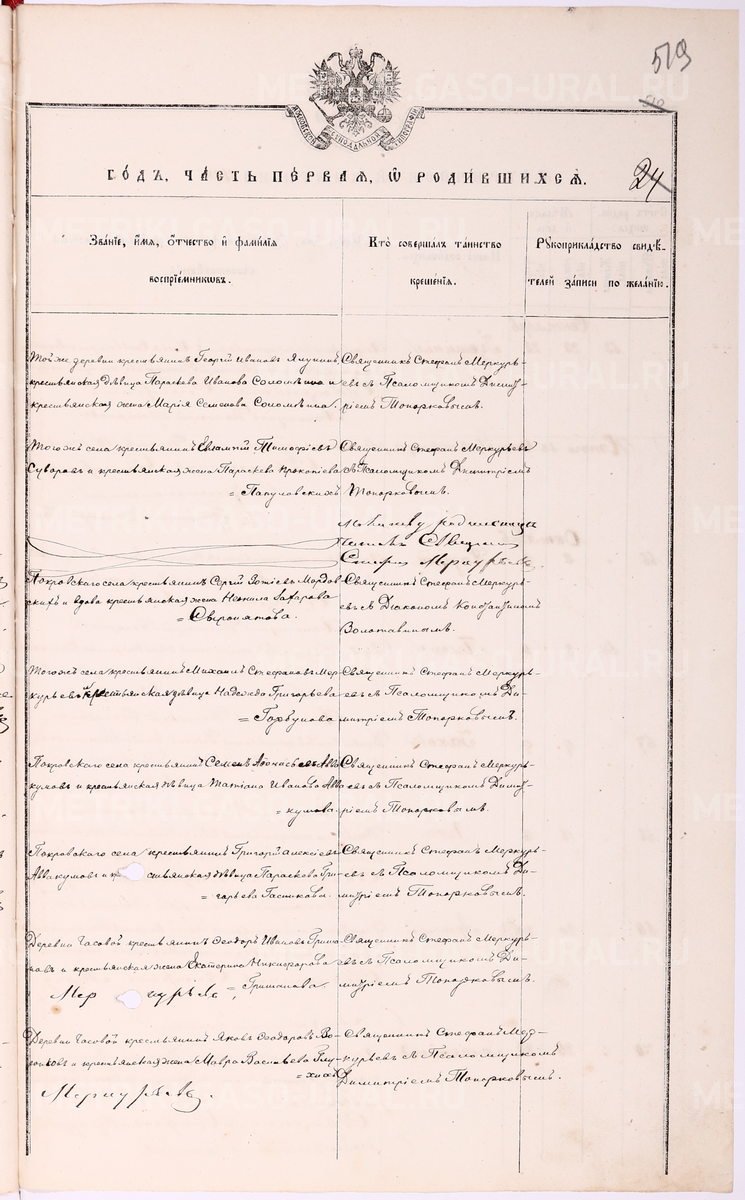 519
24
Московской Сѵнодальной Типографіи
го́дъ, ча́сть пе́рваѧ, ѡ҆ роди́вшихсѧ.
Зва́нїе, и҆́мѧ, ѻ҆́тчество и҆ фами́лїѧ
воспрїе́мникѡвъ.
Кто̀ соверша́лъ та́инство
креще́нїѧ.
Рꙋкоприкла́дство свидѣ́-
телей за́писи по жела́нїю.
Той же деревни крестьянинъ Георгій Ивановъ
крестьянская дѣвица Параскева Иванова Соломѣина и
крестьянская жена Марія Семенова Соломѣина.
Священникъ Стефанъ Меркурь-
евъ съ Псаломщикомъ Димит-
ріемъ Топорковымъ.
Того жъ села крестьянинъ Евлампій Тимофіевъ
Суворовъ и крестьянская жена Параскева Прокопіева
= Папуловскихъ
Священникъ Стефанъ Меркурьевъ
съ Псаломщикомъ Димитріемъ
Топорковымъ.
Стефанъ Меркурьевъ
Покровскаго села крестьянинъ Сергій Зотіевъ Мордов-
скихъ и вдова крестьянская жена Неонила Захарова
Священникъ Стефанъ Меркурь-
евъ съ Діакономъ Константиномъ
Золотавинымъ.
Того жъ села крестьянинъ Михаилъ Стефановъ Мер-
курьевъ и крестьянская дѣвица Надежда Григорьева
= Горбунова
Священникъ Стефанъ Меркурь-
евъ съ Псаломщикомъ Ди-
митріемъ Топорковымъ.
Покровскаго села крестьянинъ Семенъ Авва-
кумовъ и крестьянская дѣвица Татіана Иванова Авва
= кумова.
Священникъ Стефанъ Меркурь-
евъ съ Псаломщикомъ Димит-
ріемъ Топорковымъ.
Покровскаго села крестьянинъ Григорій Алексіевъ
Аввакумовъ и крестьянская дѣвица Параскева Гри-
= горьева
Священникъ Стефанъ Меркурь-
евъ съ Псаломщикомъ Ди-
митріемъ Топорковымъ.
Деревни Часовой крестьянинъ Ѳеодоръ Ивановъ Гриша-
новъ и крестьянская жена Екатерина Никифорова
= Гришанова.
Меркурьевъ
Священникъ Стефанъ Меркурь-
евъ съ Псаломщикомъ Ди-
митріемъ Топорковымъ.
Деревни Часовой крестьянинъ Яковъ Ѳеодоровъ Во-
и крестьянская жена Мавра Васильева Глу-
= хихъ
Меркурьевъ
Священникъ Стефанъ Мер-
курьевъ съ Псаломщикомъ
Димитріемъ Топорковымъ.